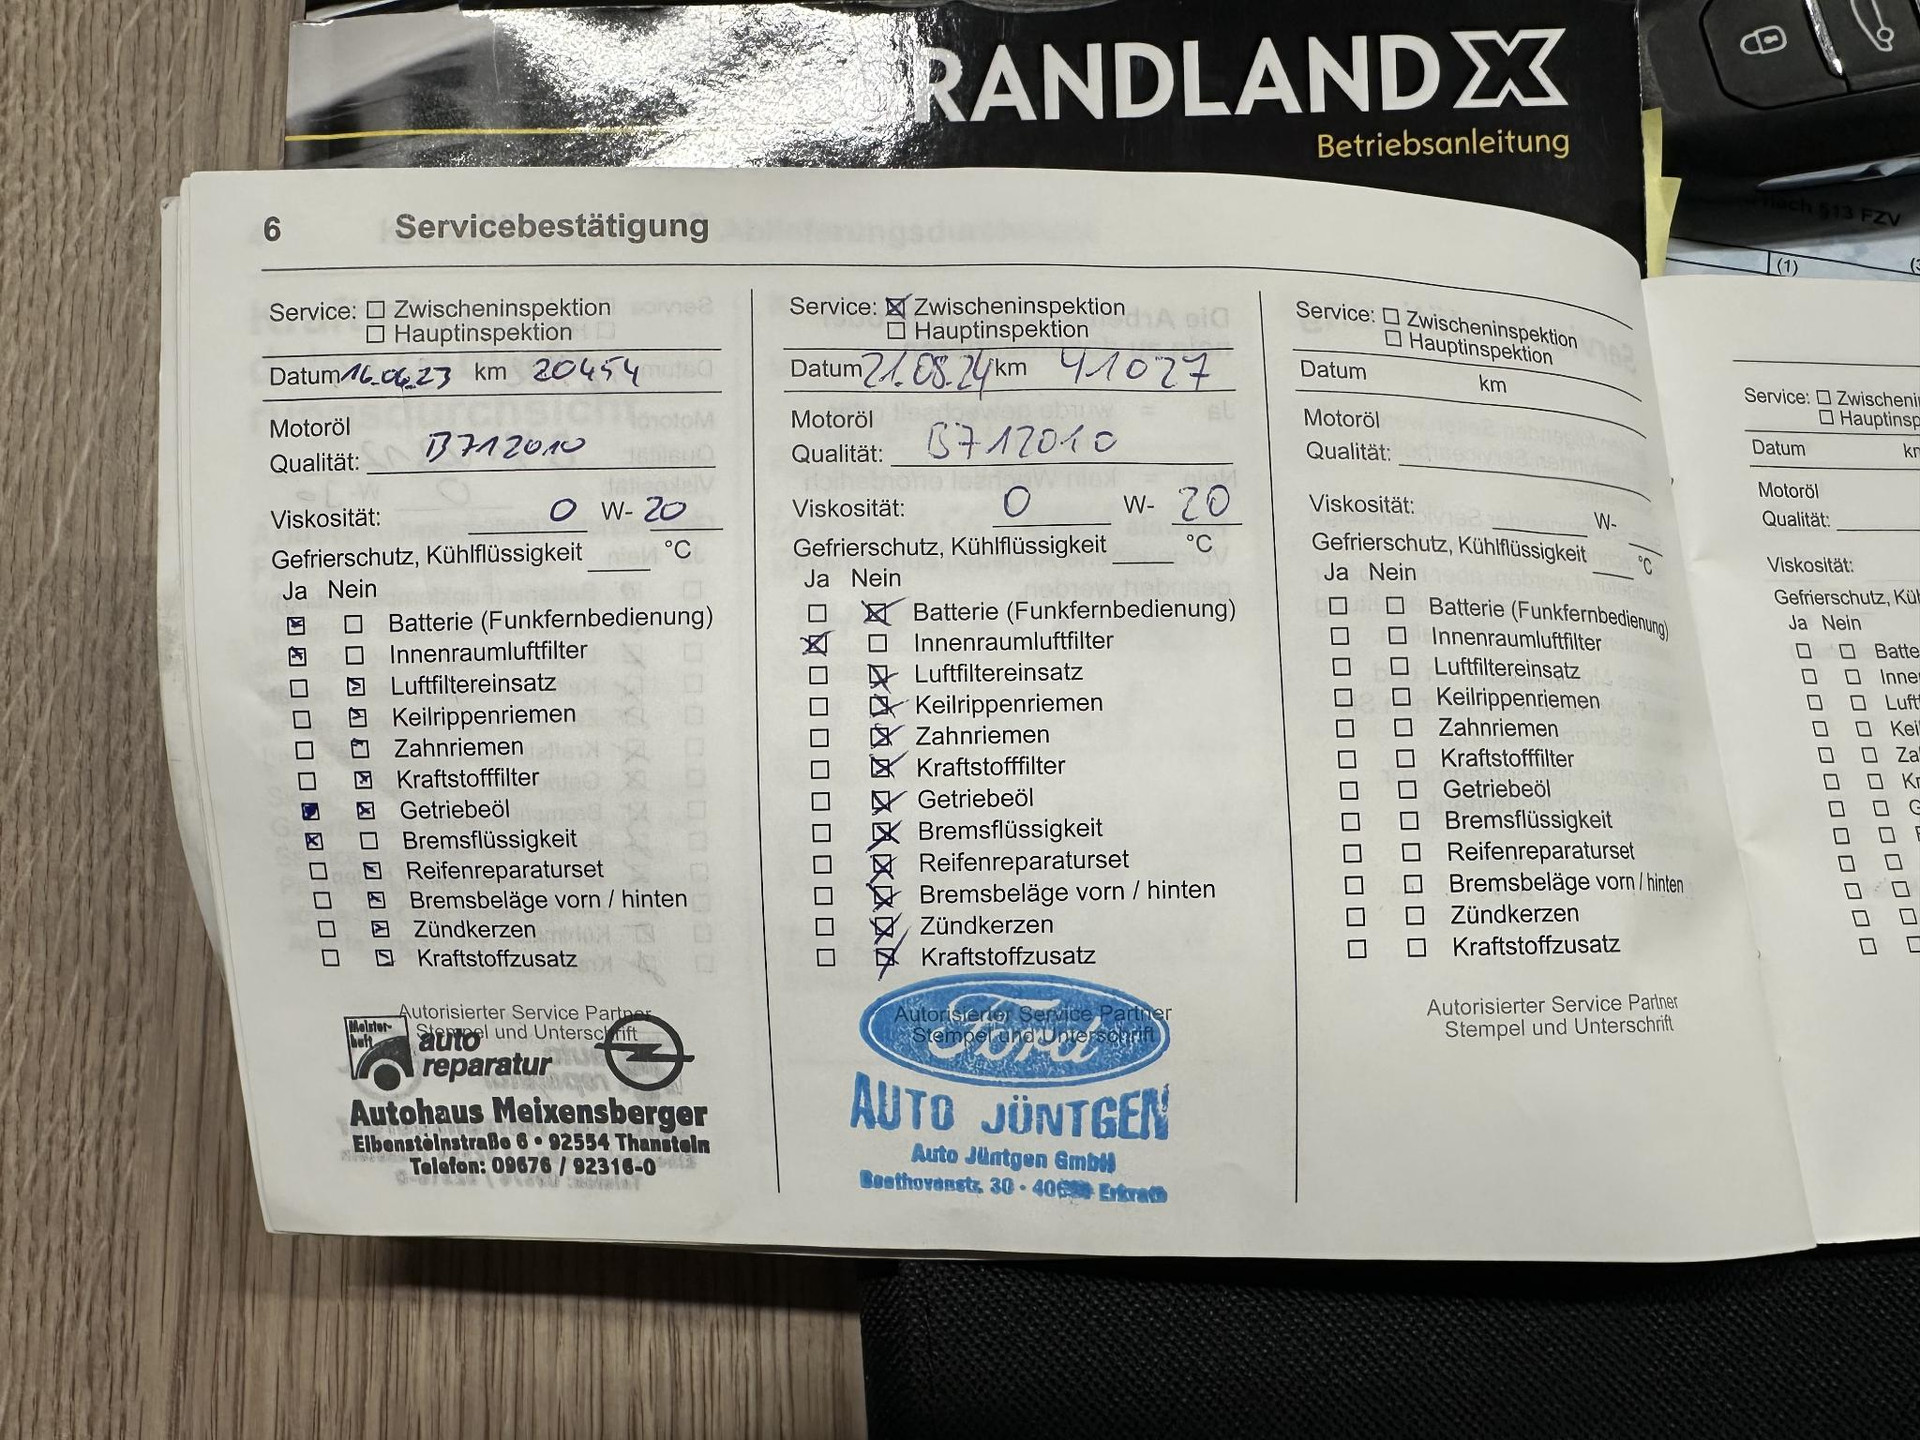 RANDLAND X
Betriebsanleitung
nach §13 FZV
(1)
6 Servicebestätigung
Service: Zwischeninspektion
Hauptinspektion
Datum 16.06.23 km 20454
Motoröl
Qualität: B712010
Viskosität: 0 W- 20
Gefrierschutz, Kühlflüssigkeit °C
Ja Nein
Batterie (Funkfernbedienung)
Innenraumluftfilter
Luftfiltereinsatz
Keilrippenriemen
Zahnriemen
Kraftstofffilter
Getriebeöl
Bremsflüssigkeit
Reifenreparaturset
Bremsbeläge vorn / hinten
Zündkerzen
Kraftstoffzusatz
Autorisierter Service Partner
Stempel und Unterschrift
Meister-
haft
auto
reparatur
Autohaus Meixensberger
Eibensteinstraße 6 • 92554 Thanstein
Telefon: 09676 / 92316-0
Service: Zwischeninspektion
Hauptinspektion
Datum 21.08.24 km 41027
Motoröl
Qualität: B712010
Viskosität: 0 W- 20
Gefrierschutz, Kühlflüssigkeit °C
Ja Nein
Batterie (Funkfernbedienung)
Innenraumluftfilter
Luftfiltereinsatz
Keilrippenriemen
Zahnriemen
Kraftstofffilter
Getriebeöl
Bremsflüssigkeit
Reifenreparaturset
Bremsbeläge vorn / hinten
Zündkerzen
Kraftstoffzusatz
Autorisierter Service Partner
Stempel und Unterschrift
Ford
AUTO JÜNTGEN
Auto Jüntgen GmbH
Beethovenstr. 30 • Erkrath
Service: Zwischeninspektion
Hauptinspektion
Datum km
Motoröl
Qualität:
Viskosität: W-
Gefrierschutz, Kühlflüssigkeit °C
Ja Nein
Batterie (Funkfernbedienung)
Innenraumluftfilter
Luftfiltereinsatz
Keilrippenriemen
Zahnriemen
Kraftstofffilter
Getriebeöl
Bremsflüssigkeit
Reifenreparaturset
Bremsbeläge vorn / hinten
Zündkerzen
Kraftstoffzusatz
Autorisierter Service Partner
Stempel und Unterschrift
Service: Zwischeni
Hauptinsp
Datum km
Motoröl
Qualität:
Viskosität:
Gefrierschutz, Küh
Ja Nein
Batte
Inne
Luft
Kei
Za
Kr
G